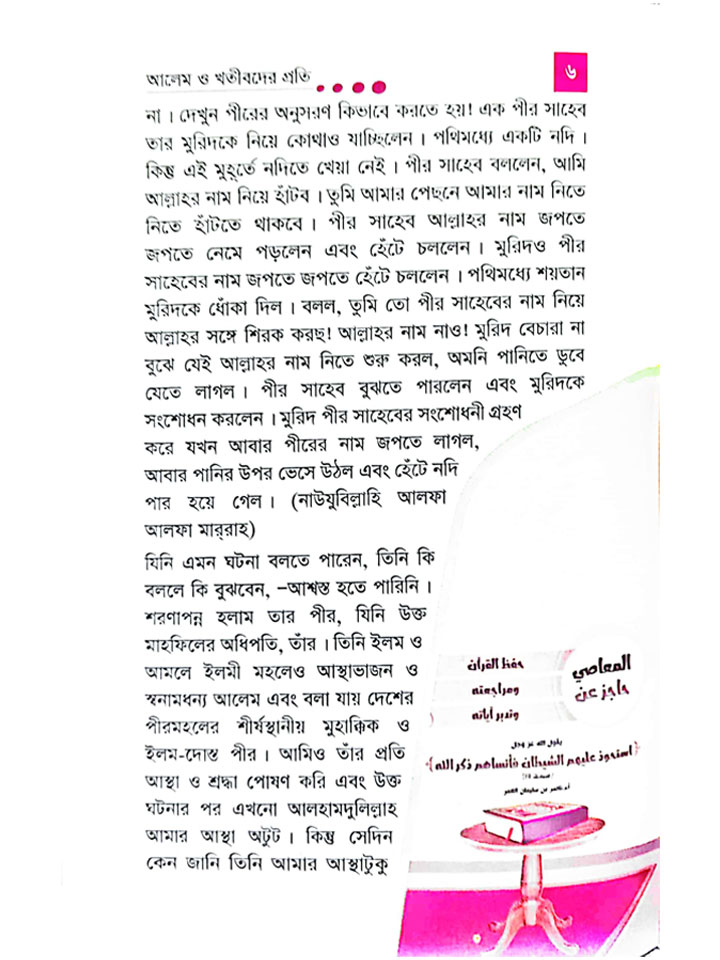 আলেম ও খতীবদের প্রতি
৬
না । দেখুন পীরের অনুসরণ কিভাবে করতে হয়! এক পীর সাহেব
তার মুরিদকে নিয়ে কোথাও যাচ্ছিলেন । পথিমধ্যে একটি নদি ।
কিন্তু এই মুহূর্তে নদিতে খেয়া নেই । পীর সাহেব বললেন, আমি
আল্লাহর নাম নিয়ে হাঁটব । তুমি আমার পেছনে আমার নাম নিতে
নিতে হাঁটতে থাকবে । পীর সাহেব আল্লাহর নাম জপতে
জপতে নেমে পড়লেন এবং হেঁটে চললেন । মুরিদও পীর
সাহেবের নাম জপতে জপতে হেঁটে চললেন । পথিমধ্যে শয়তান
মুরিদকে ধোঁকা দিল । বলল, তুমি তো পীর সাহেবের নাম নিয়ে
আল্লাহর সঙ্গে শিরক করছ! আল্লাহর নাম নাও! মুরিদ বেচারা না
বুঝে যেই আল্লাহর নাম নিতে শুরু করল, অমনি পানিতে ডুবে
যেতে লাগল । পীর সাহেব বুঝতে পারলেন এবং মুরিদকে
সংশোধন করলেন । মুরিদ পীর সাহেবের সংশোধনী গ্রহণ
করে যখন আবার পীরের নাম জপতে লাগল,
আবার পানির উপর ভেসে উঠল এবং হেঁটে নদি
পার হয়ে গেল । (নাউযুবিল্লাহি আলফা
আলফা মার্‌রাহ)
যিনি এমন ঘটনা বলতে পারেন, তিনি কি
বললে কি বুঝবেন, –আশ্বস্ত হতে পারিনি ।
শরণাপন্ন হলাম তার পীর, যিনি উক্ত
মাহফিলের অধিপতি, তাঁর । তিনি ইলম ও
আমলে ইলমী মহলেও আস্থাভাজন ও
স্বনামধন্য আলেম এবং বলা যায় দেশের
পীরমহলের শীর্ষস্থানীয় মুহাক্কিক ও
ইলম-দোস্ত পীর । আমিও তাঁর প্রতি
আস্থা ও শ্রদ্ধা পোষণ করি এবং উক্ত
ঘটনার পর এখনো আলহামদুলিল্লাহ
আমার আস্থা অটুট । কিন্তু সেদিন
কেন জানি তিনি আমার আস্থাটুকু
المعاصي
حاجز عن
حفظ القرآن
ومراجعته
وتدبر آياته
يقول الله عز وجل
﴿استحوذ عليهم الشيطان فأنساهم ذكر الله﴾
أ.د ناصر بن سليمان العمر